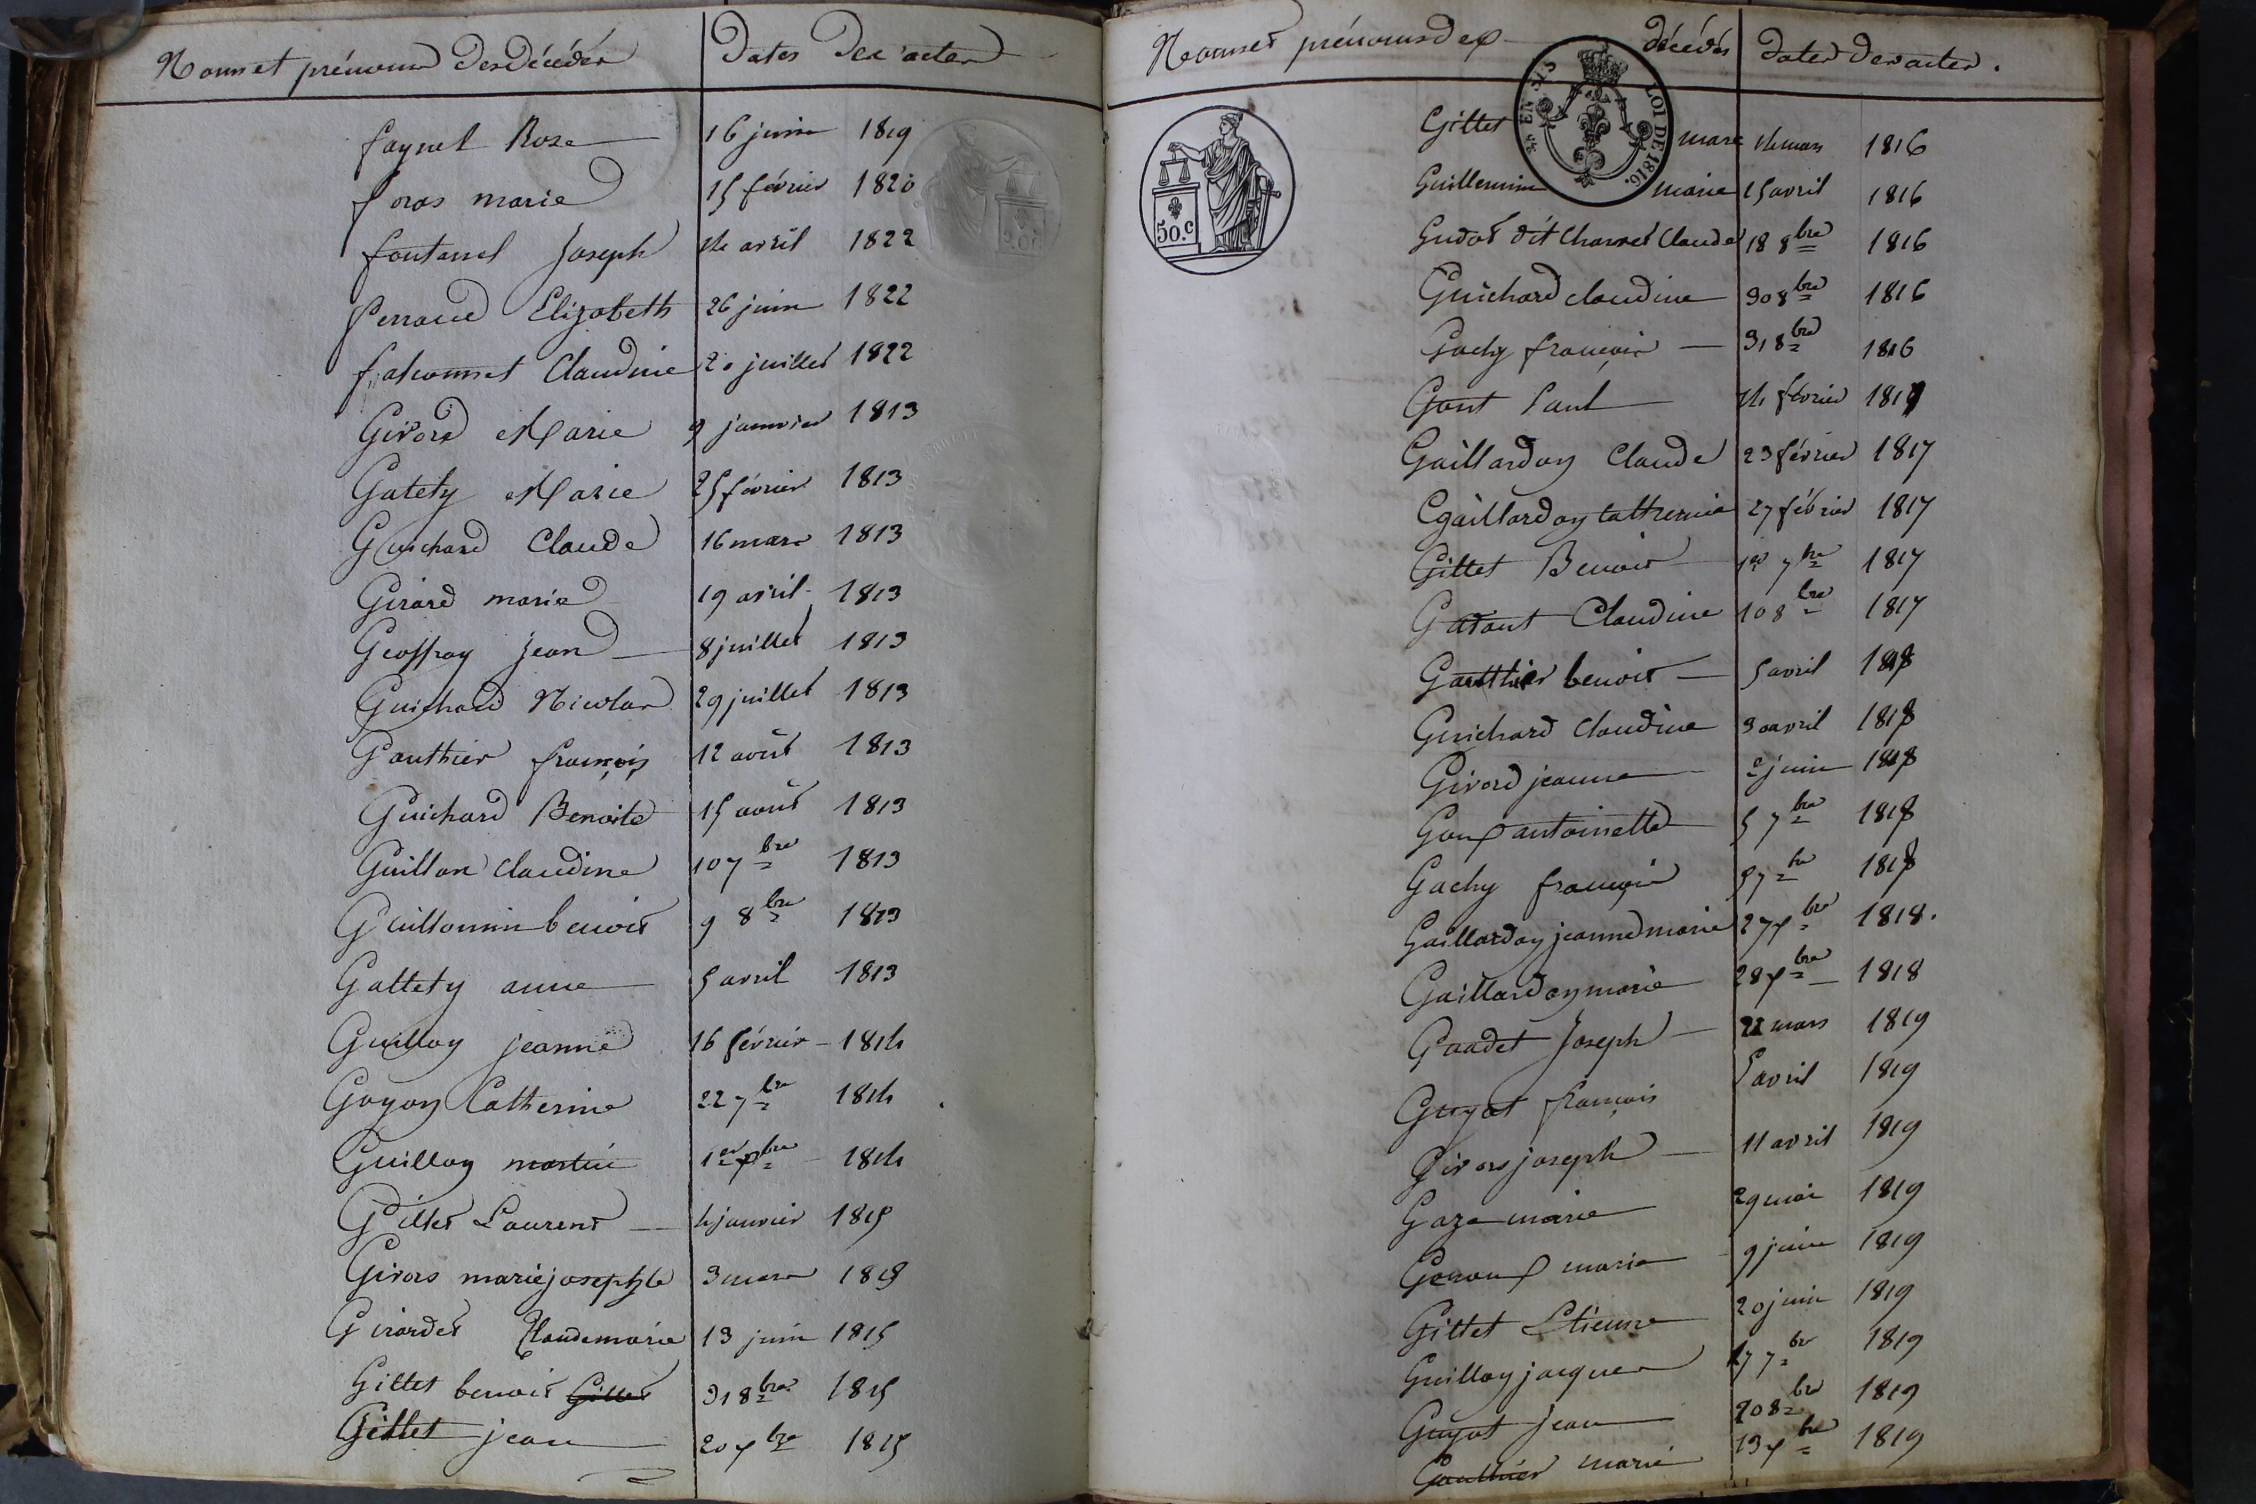 Noms et prénoms des décédés Dates des actes
faynel Rose 16 juin 1819
foras marie 15 février 1820
fontanel Joseph 4 avril 1822
ferraud Elizabeth 26 juin 1822
falconnet Claudine 20 juillet 1822
Girord Marie 9 janvier 1813
Gatety Marie 25 février 1813
Guichard Claude 16 mars 1813
Girard marie 19 avril 1813
Geoffray jean 8 juillet 1813
Guichard Nicolas 29 juillet 1813
Gauthier françois 12 août 1813
Guichard Benoite 15 août 1813
Guillon claudine 10 7bre 1813
Guillomin benoit 9 8bre 1813
Gattety anne 5 avril 1813
Guillay jeanne 16 février 1814
Goyon Catherine 22 7bre 1814
Guillay martin 1er xbre 1814
Gillet Laurent 4 janvier 1815
Girors marie josephte 3 mars 1815
Girardet Claude marie 13 juin 1815
Gillet benoit Gillet 31 8bre 1815
Gillet jean 20 xbre 1815
Noms et prénoms des décédés dates des actes.
3/5 EN SUS
LOI DE 1816.
50.c
Gillet marc 14 mars 1816
Guillermin marie 15 avril 1816
Gudot dit Charvet Claude 18 8bre 1816
Guichard claudine 30 8bre 1816
Gachy françois 31 8bre 1816
Gont Paul 14 février 1817
Gaillardon Claude 23 février 1817
Gaillardon Catherine 27 février 1817
Gillet Benoit 1er 7bre 1817
Gatant Claudine 10 8bre 1817
Gautthier benoit 5 avril 1818
Guichard claudine 30 avril 1818
Girord jeanne 2 juin 1818
Goux antoinette 5 7bre 1818
Gachy françois 5 7bre 1818
Gaillardon jeanne marie 27 xbre 1818.
Gaillardon marie 28 xbre 1818
Gaudet Joseph 22 mars 1819
Guyot françois 5 avril 1819
Girors joseph 11 avril 1819
Gaze marie 29 mai 1819
Genoux marie 9 juin 1819
Gillet Etienne 20 juin 1819
Guillay jacques 17 7bre 1819
Guyot Jean 20 8bre 1819
Gauthier marie 13 xbre 1819